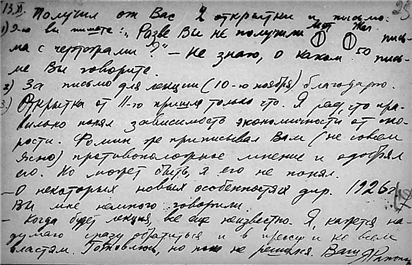 13.XI. Получил от Вас 2 открытки и письмо:
1) Вы пишете: "Разве Вы не получили
письма с чертежами" – Не знаю, о каком письме
Вы говорите.
2) За письмо для лекции (10-го ноября) благодарю.
3) Открытка от 11-го пришла только что. Я рад, что правильно
понял зависимость экономичности от скорости.
Фомин же приписывал Вам (не совсем
ясно) противоположное мнение и одобрял
его. Но может быть, я его не понял.
– О некоторых новых особенностях дир. 1926 г.
Вы мне немного говорили.
– Когда будет лекция, все еще неизвестно. Я, кажется,
думаю сразу обратиться и в прессу и ко всем
властям. Готовлюсь, но не решался. Ваш